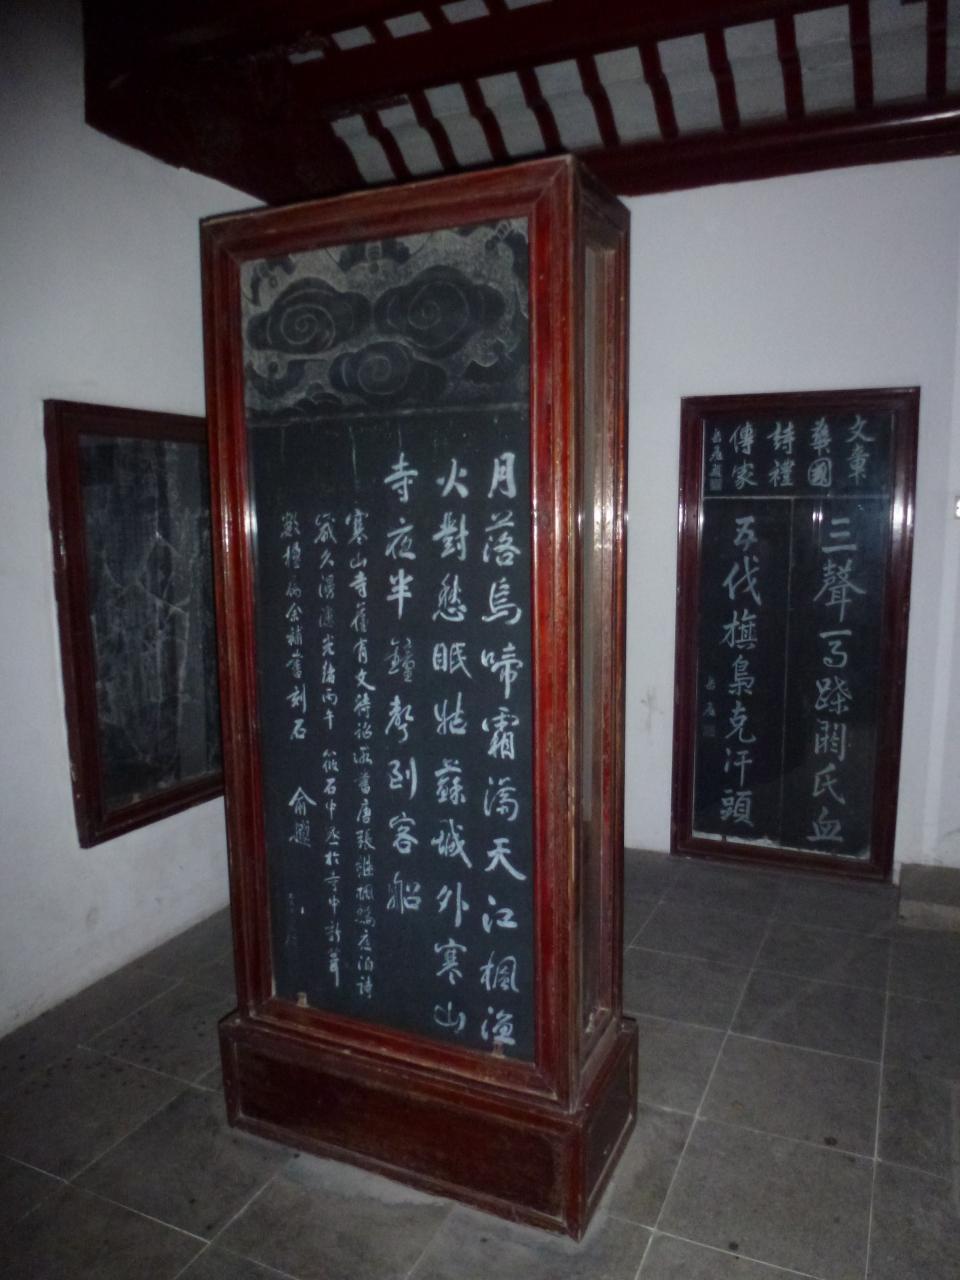 月落烏啼霜滿天江楓漁
火對愁眠姑蘇城外寒山
寺夜半鐘聲到客船
寒山寺舊有文待詔所書唐張繼楓橋夜泊詩
歲久漫漶光緒丙午筱石中丞於寺中新葺
數楹屬余補書刻石
俞樾
文章
華國
詩禮
傳家
三聲馬蹀閼氏血
五伐旗梟克汗頭